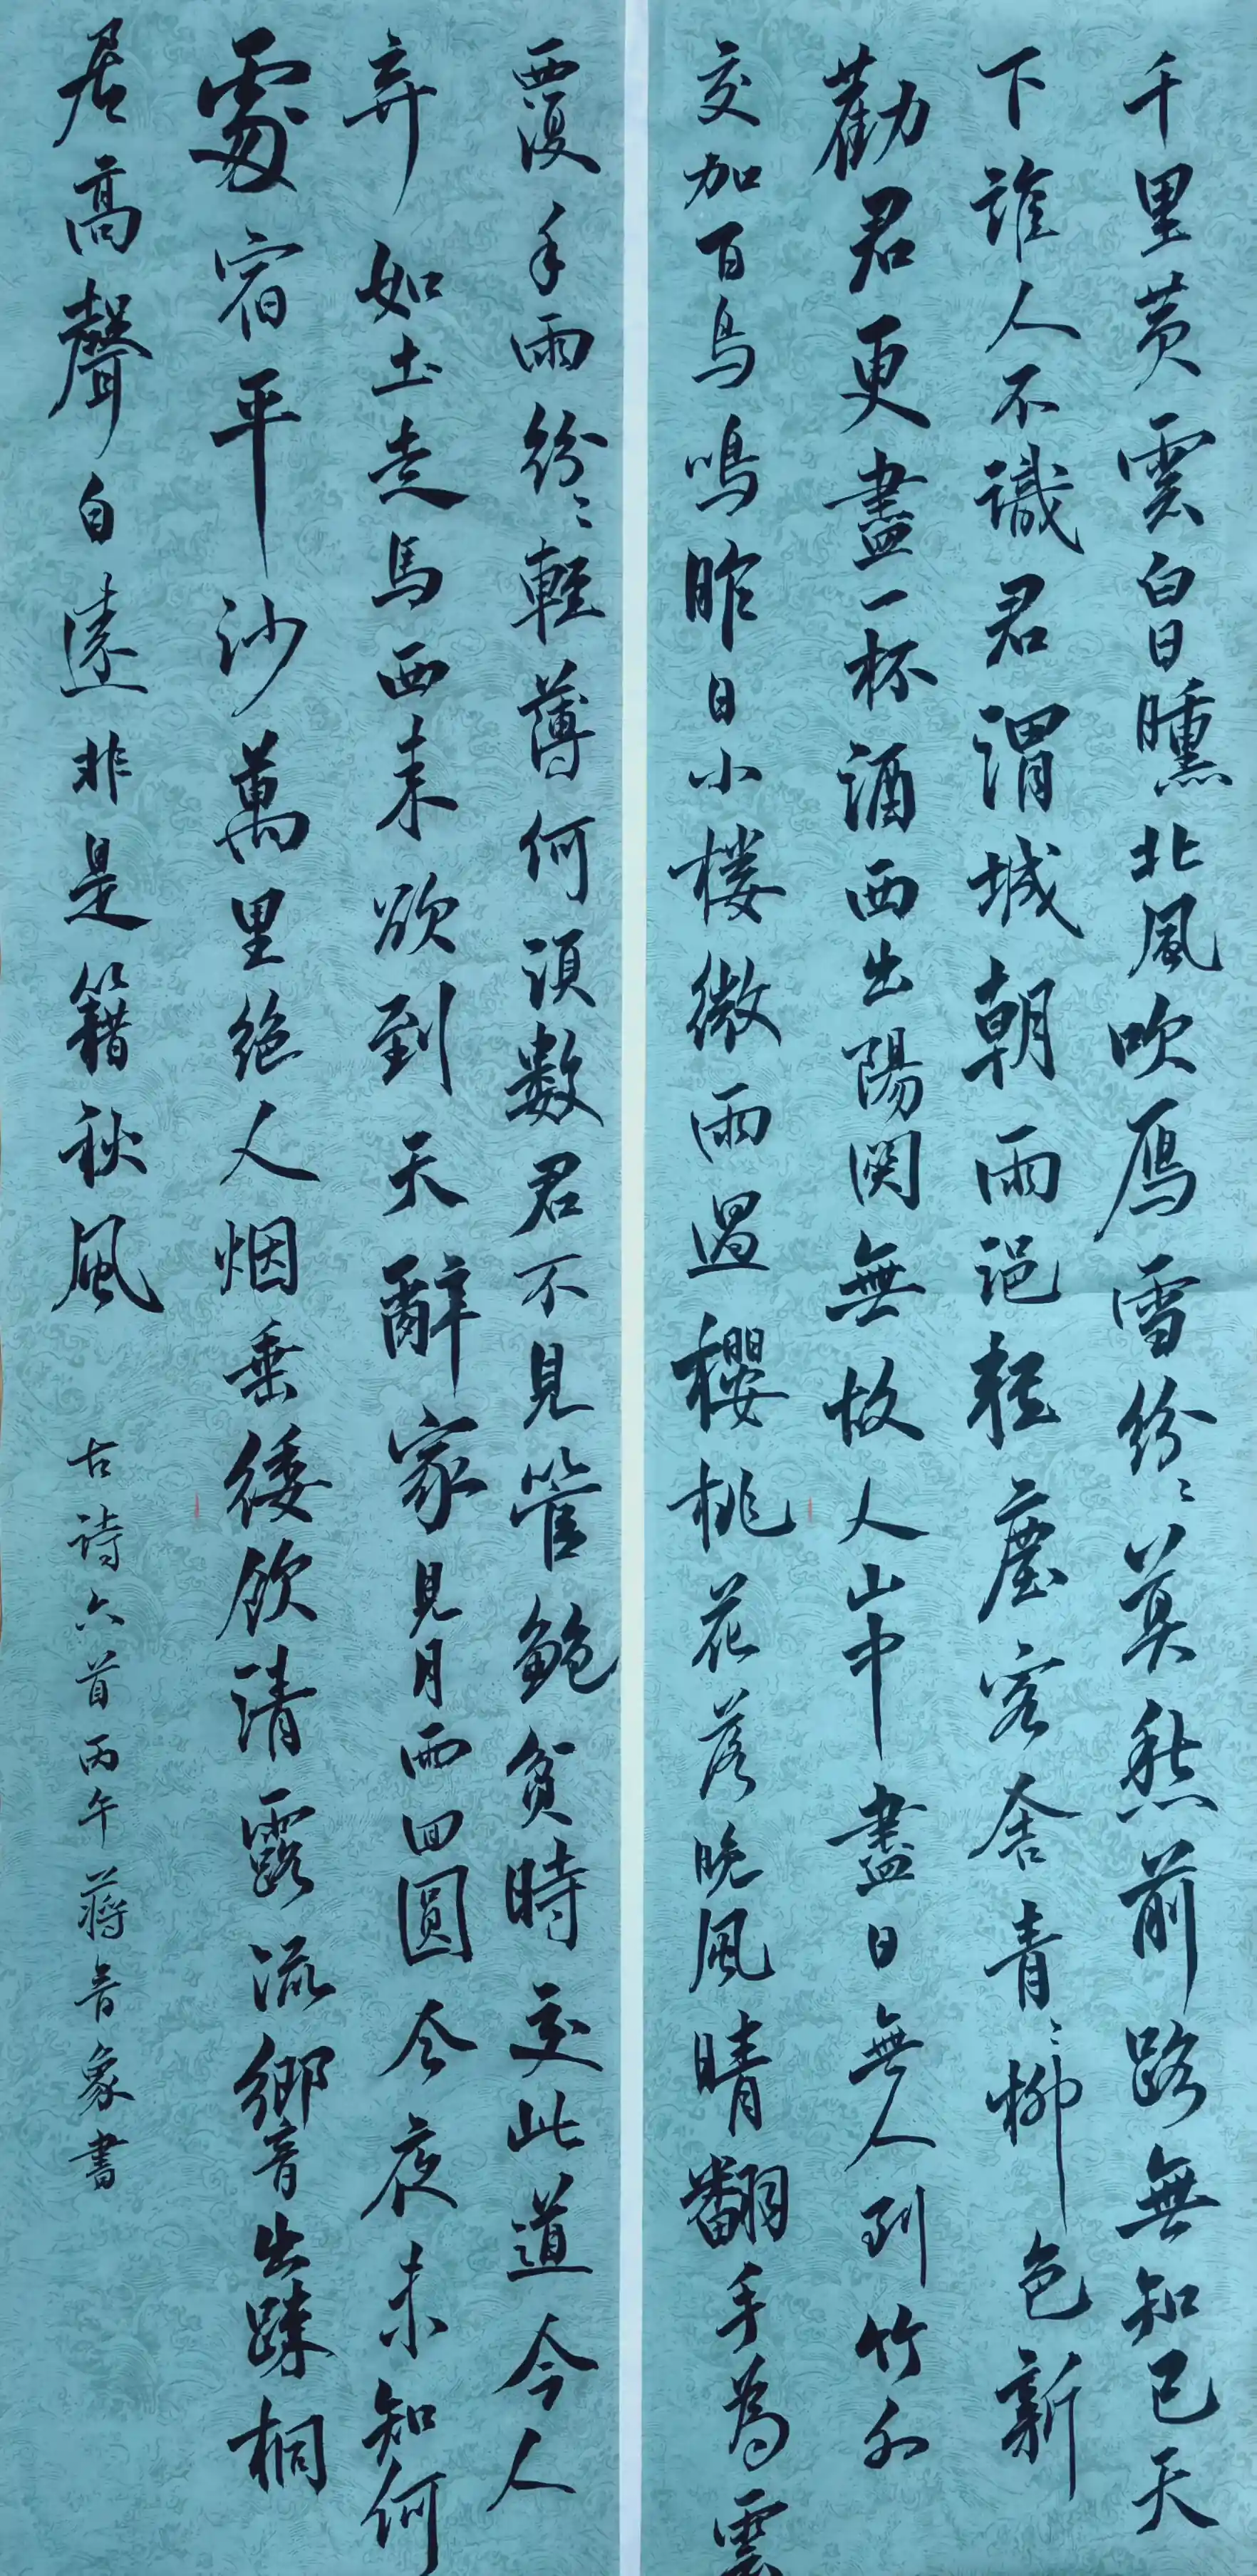 千里黄雲白日曛北風吹雁雪紛〻莫愁前路無知己天
下誰人不識君渭城朝雨浥輕塵客舍青〻柳色新
勸君更盡一杯酒西出陽関無故人山中盡日無人到竹外
交加百鳥鳴昨日小楼微雨過櫻桃花落晚風晴翻手為雲
覆手雨紛〻輕薄何須數君不見管鮑貧時交此道今人
弃如土走馬西来欲到天辭家見月兩回圓今夜未知何
處宿平沙萬里絕人烟垂緌飲清露流響出踈桐
居高聲自遠非是籍秋風
古诗六首丙午蔣音象書